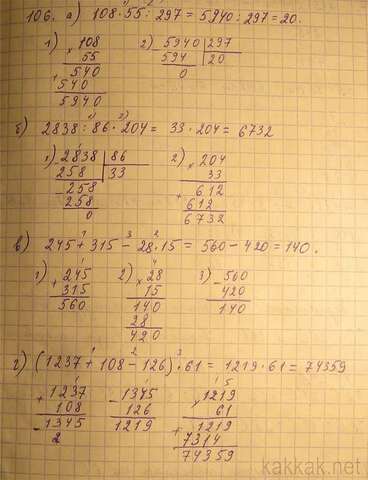 106. а) 108 · 55 : 297 = 5940 : 297 = 20.
1) × 108
55
540
+ 540
5940
2) - 5940 | 297
594 | 20
0
б) 2838 : 86 · 204 = 33 · 204 = 6732
1) - 2838 | 86
258 | 33
- 258
258
0
2) × 204
33
+ 612
612
6732
в) 245 + 315 - 28 · 15 = 560 - 420 = 140.
1) + 245
315
560
2) × 28
15
140
28
420
3) - 560
420
140
г) (1237 + 108 - 126) · 61 = 1219 · 61 = 74359
+ 1237
108
- 1345
2
- 1345
126
1219
× 1219
61
+ 1219
7314
74359
kakkak.net